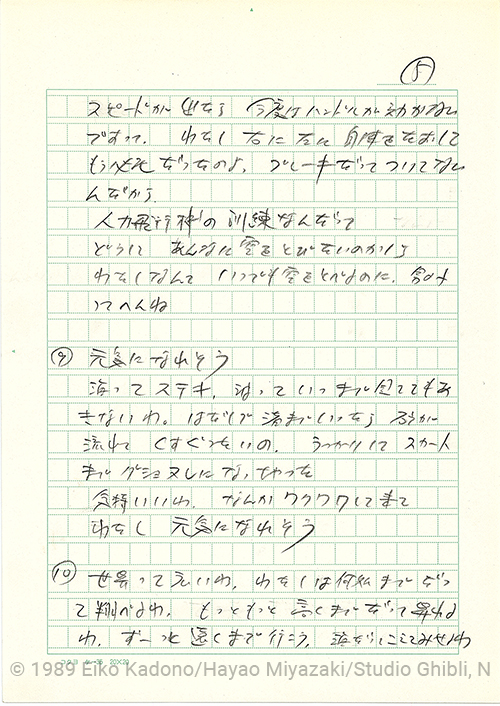 5
スピードが出たら 今度はハンドルが効かない
ですって。わたし右に左に自転車をたおして
もう必死だったのよ。ブレーキだってついてない
んだから
人力飛行機の訓練なんだって
どうして あんなに空をとびたいのかしら
わたしなんて いつでも空をとべるのに。
って へんね
⑨ 元気になれそう
海ってステキ。海っていつまで見てても
あきないわ。はだしで 波が
流れて くすぐったいの。うっかりして スカート
まで グショヌレになっちゃった
気持いいわ。なんかワクワクして来て
わたし 元気になれそう
⑩ 世界って 広いわ。わたしは何処までだっ
て翔べるわ。もっともっと高くまでだって昇れる
わ。ずーっと遠くまで行こう。海だってこえてみせるわ
コクヨ 20×20
© 1989 Eiko Kadono/Hayao Miyazaki/Studio Ghibli, N